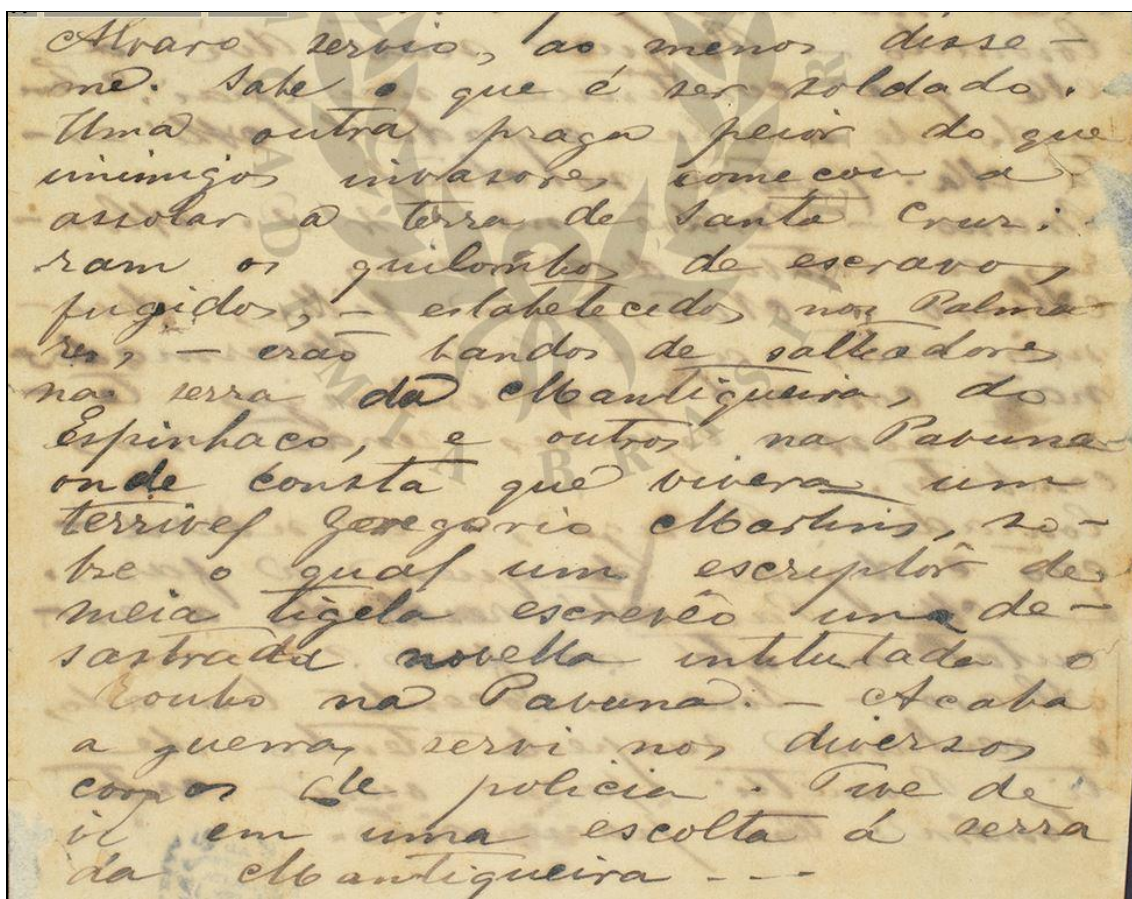 Alvaro servio, ao menos disse-
me. Sabe o que é ser soldado.
Uma outra praga peior do que
inimigos invasores começou a
assolar a terra de Santa Cruz:
ram os quilombos de escravos
fugidos, - estabelecidos nos Palma-
res, - erão bandos de salteadores
na serra da Mantiqueira, do
Espinhaco, e outros na Pavuna
onde consta que vivera um
terrivel Gregorio Martins, so-
bre o qual um escriptôr de
meia tigela escrevêo uma de-
sastrada novella intitulada o
roubo na Pavuna. - Acaba
a guerra, servi nos diversos
corpos de policia. Tive de
ir em uma escolta á serra
da Mantiqueira ---
ACADEMIA BRASILEIRA